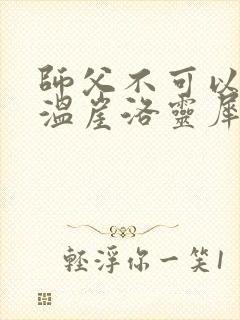 師父不可以
溫崖洛靈犀
輕浮你一笑1